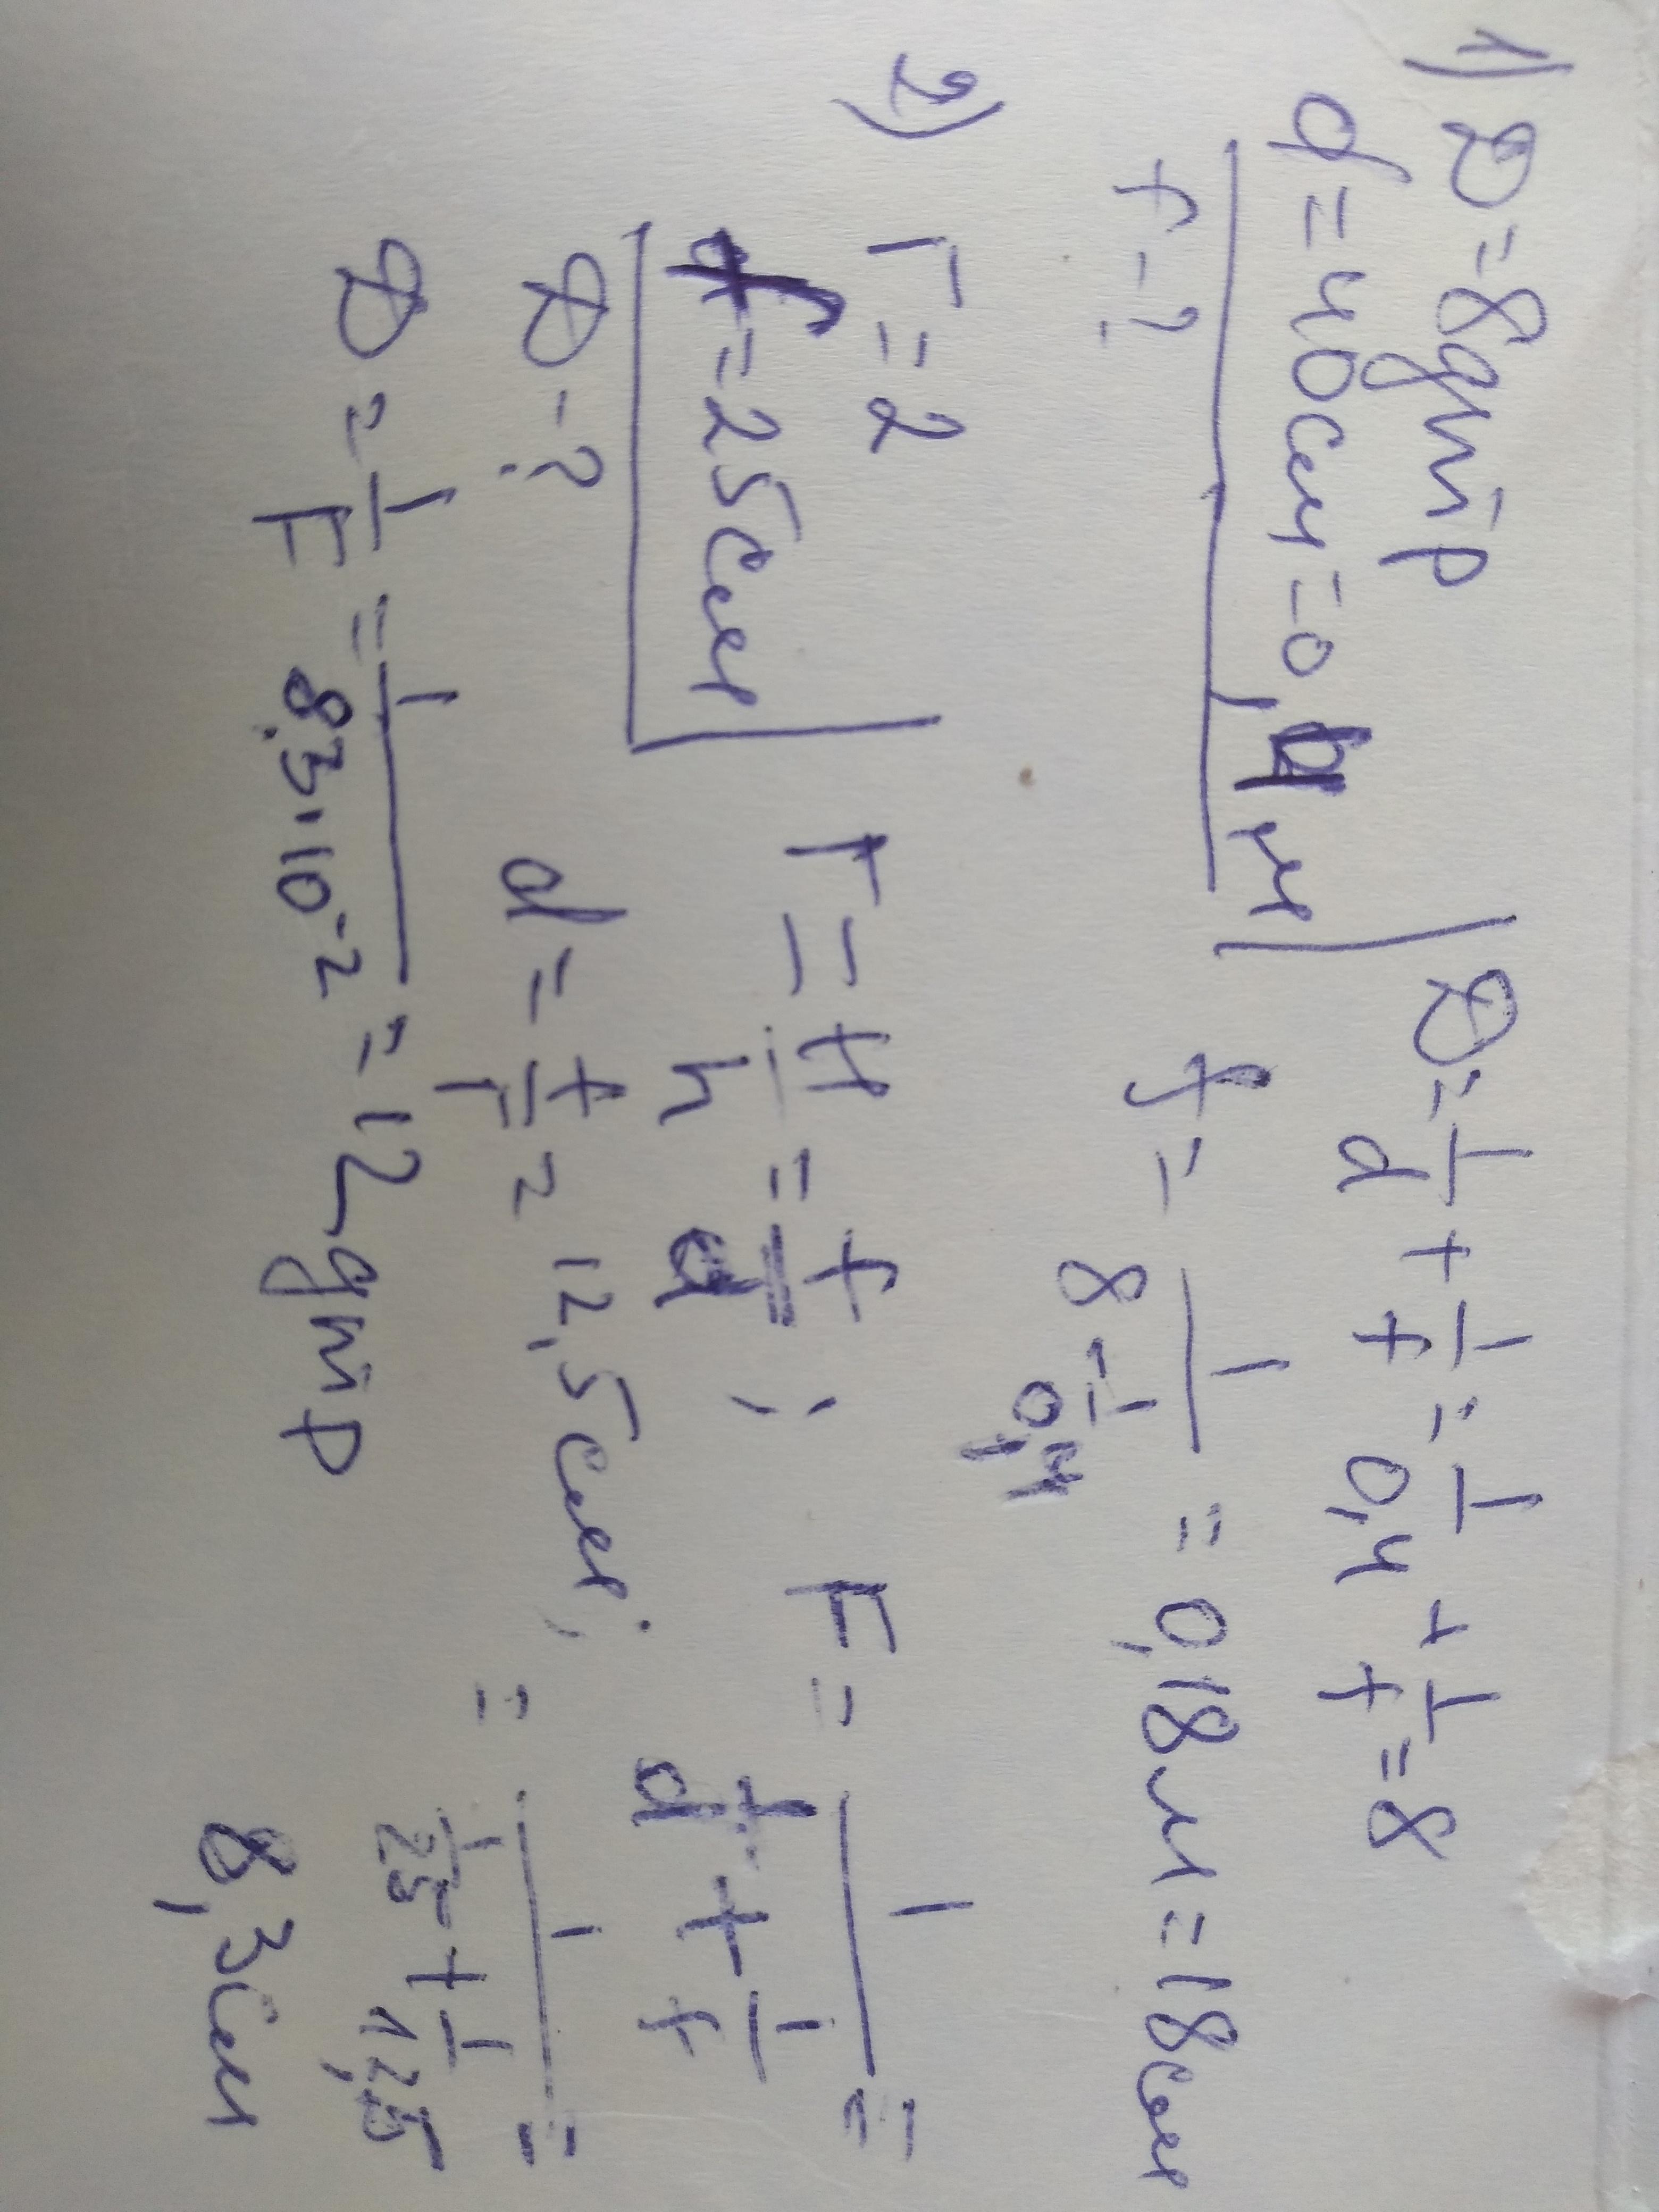 1) D = 8 дптр
d = 40 см = 0,4 м
f - ?
D = 1/d + 1/f = 1/0,4 + 1/f = 8
f = 1/(8 - 1/0,4) = 0,18 м = 18 см
2) Г = 2
f = 25 см
D - ?
Г = H/h = f/d ;
d = f/Г = 12,5 см ;
F = 1/(1/d + 1/f) =
= 1/(1/25 + 1/12,5) =
8,3 см
D = 1/F = 1/(8,3·10⁻²) = 12 дптр